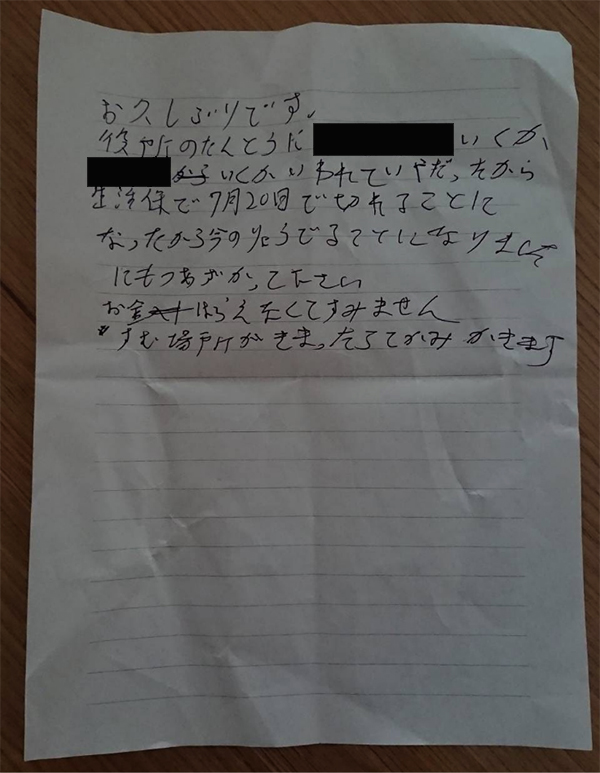 お久しぶりです。
役所のたんとうに いくか、
いくかいわれていやだったから
生活保で7月20日で切れることに
なったから今のりょうでることになりました
にもつあずかってください
お金はらえなくてすみません
すむ場所がきまったらてがみかきます